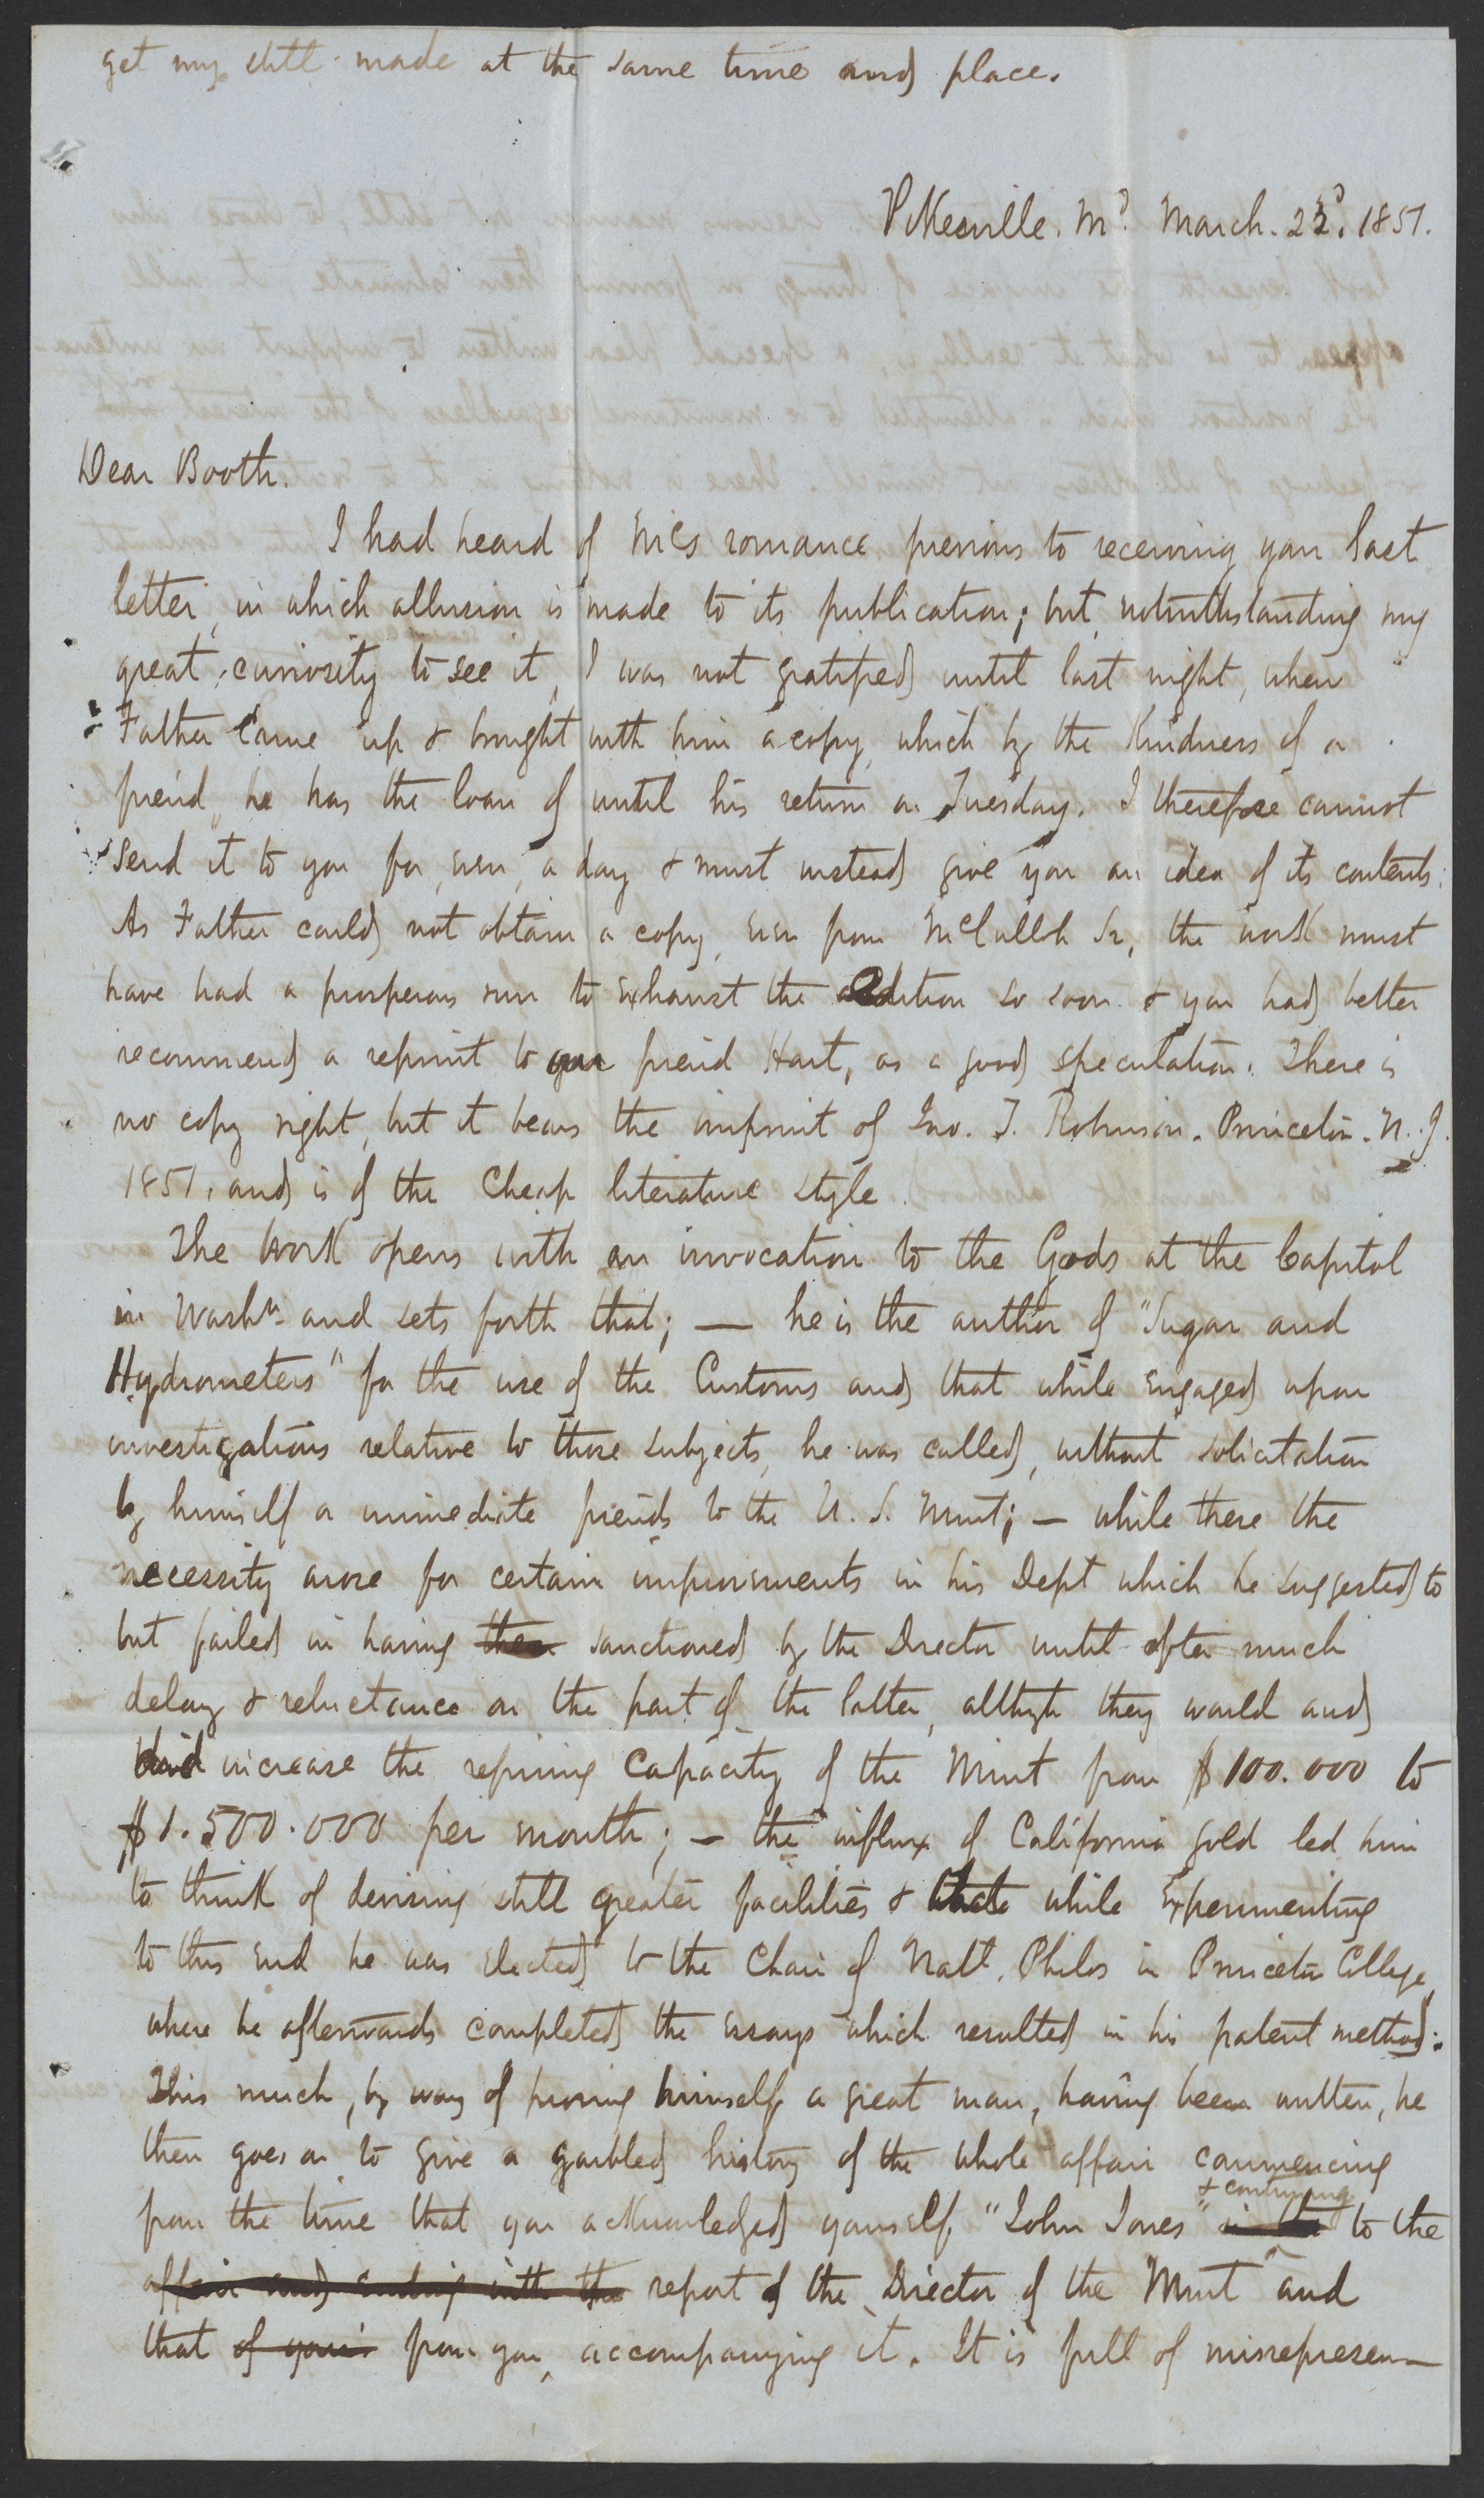 get my still made at the same time and place.
Pikesville. Md. March. 22d. 1851.
Dear Booth.
I had heard of McCs romance previous to receiving your last
letter, in which allusion is made to its publication; but, notwithstanding my
great curiosity to see it, I was not gratified until last night, when
Father came up & brought with him a copy, which by the Kindness of a
freind, he has the loan of until his return on Tuesday. I therefore cannot
send it to you for, even, a day & must instead give you an idea of its contents.
As Father could not obtain a copy, even from McCulloh Sr, the work must
have had a prosperous run to exhaust the edition so soon & you had better
recommend a reprint to our freind Hart, as a good speculation. There is
no copy right, but it bears the imprint of Jno. T. Robinson. Princeton. N. J.
1851. and is of the cheap literature style.
The Work opens with an invocation to the Gods at the Capitol
in Washn. and sets forth that; — he is the author of "Sugar and
Hydrometers" for the use of the Customs and that while engaged upon
investigations relative to those subjects, he was called, without solicitation
by himself or immediate freinds to the U. S. Mint; — while there the
necessity arose for certain improvements in his Dept which he suggested to
but failed in having them sanctioned by the Director until after much
delay & reluctance on the part of the latter, althgh they would and
did increase the refining capacity of the Mint from $100.000 to
$1.500.000 per month; — the influx of California gold led him
to think of devising still greater facilities & that while experimenting
to this end he was elected to the Chair of Natl. Philos in Princeton College,
where he afterwards completed the essays which resulted in his patent method.
This much, by way of proving himself a great man, having been written, he
then goes on to give a garbled history of the whole affair commencing
& continuing
from the time that you acKnowledged yourself "John Jones" in the to the
affair and ending with the report of the Director of the Mint and
that of yours from you, accompanying it. It is full of misrepresen—